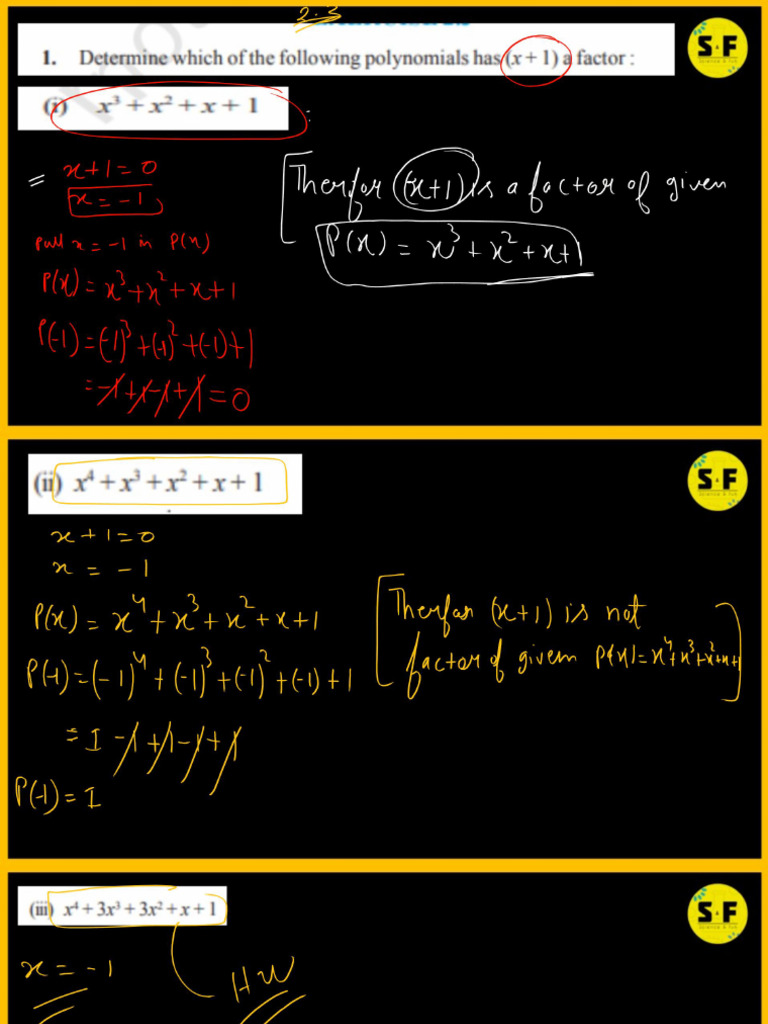 2.3
1. Determine which of the following polynomials has (x + 1) a factor :
S·F
(i) x³ + x² + x + 1
= x+1=0
x = -1
Putt x = -1 in P(x)
P(x) = x³+x²+x+1
P(-1) = (-1)³+(-1)²+(-1)+1
= -1+1-1+1 = 0
Therfor (x+1) is a factor of given
P(x) = x³+x²+x+1
S·F
(ii) x⁴ + x³ + x² + x + 1
x+1=0
x = -1
P(x) = x⁴+x³+x²+x+1
P(-1) = (-1)⁴+(-1)³+(-1)²+(-1)+1
= 1 -1+1-1+1
P(-1) = 1
Therfor (x+1) is not
factor of given P(x)=x⁴+x³+x²+x+1
S·F
(iii) x⁴ + 3x³ + 3x² + x + 1
x = -1
HW